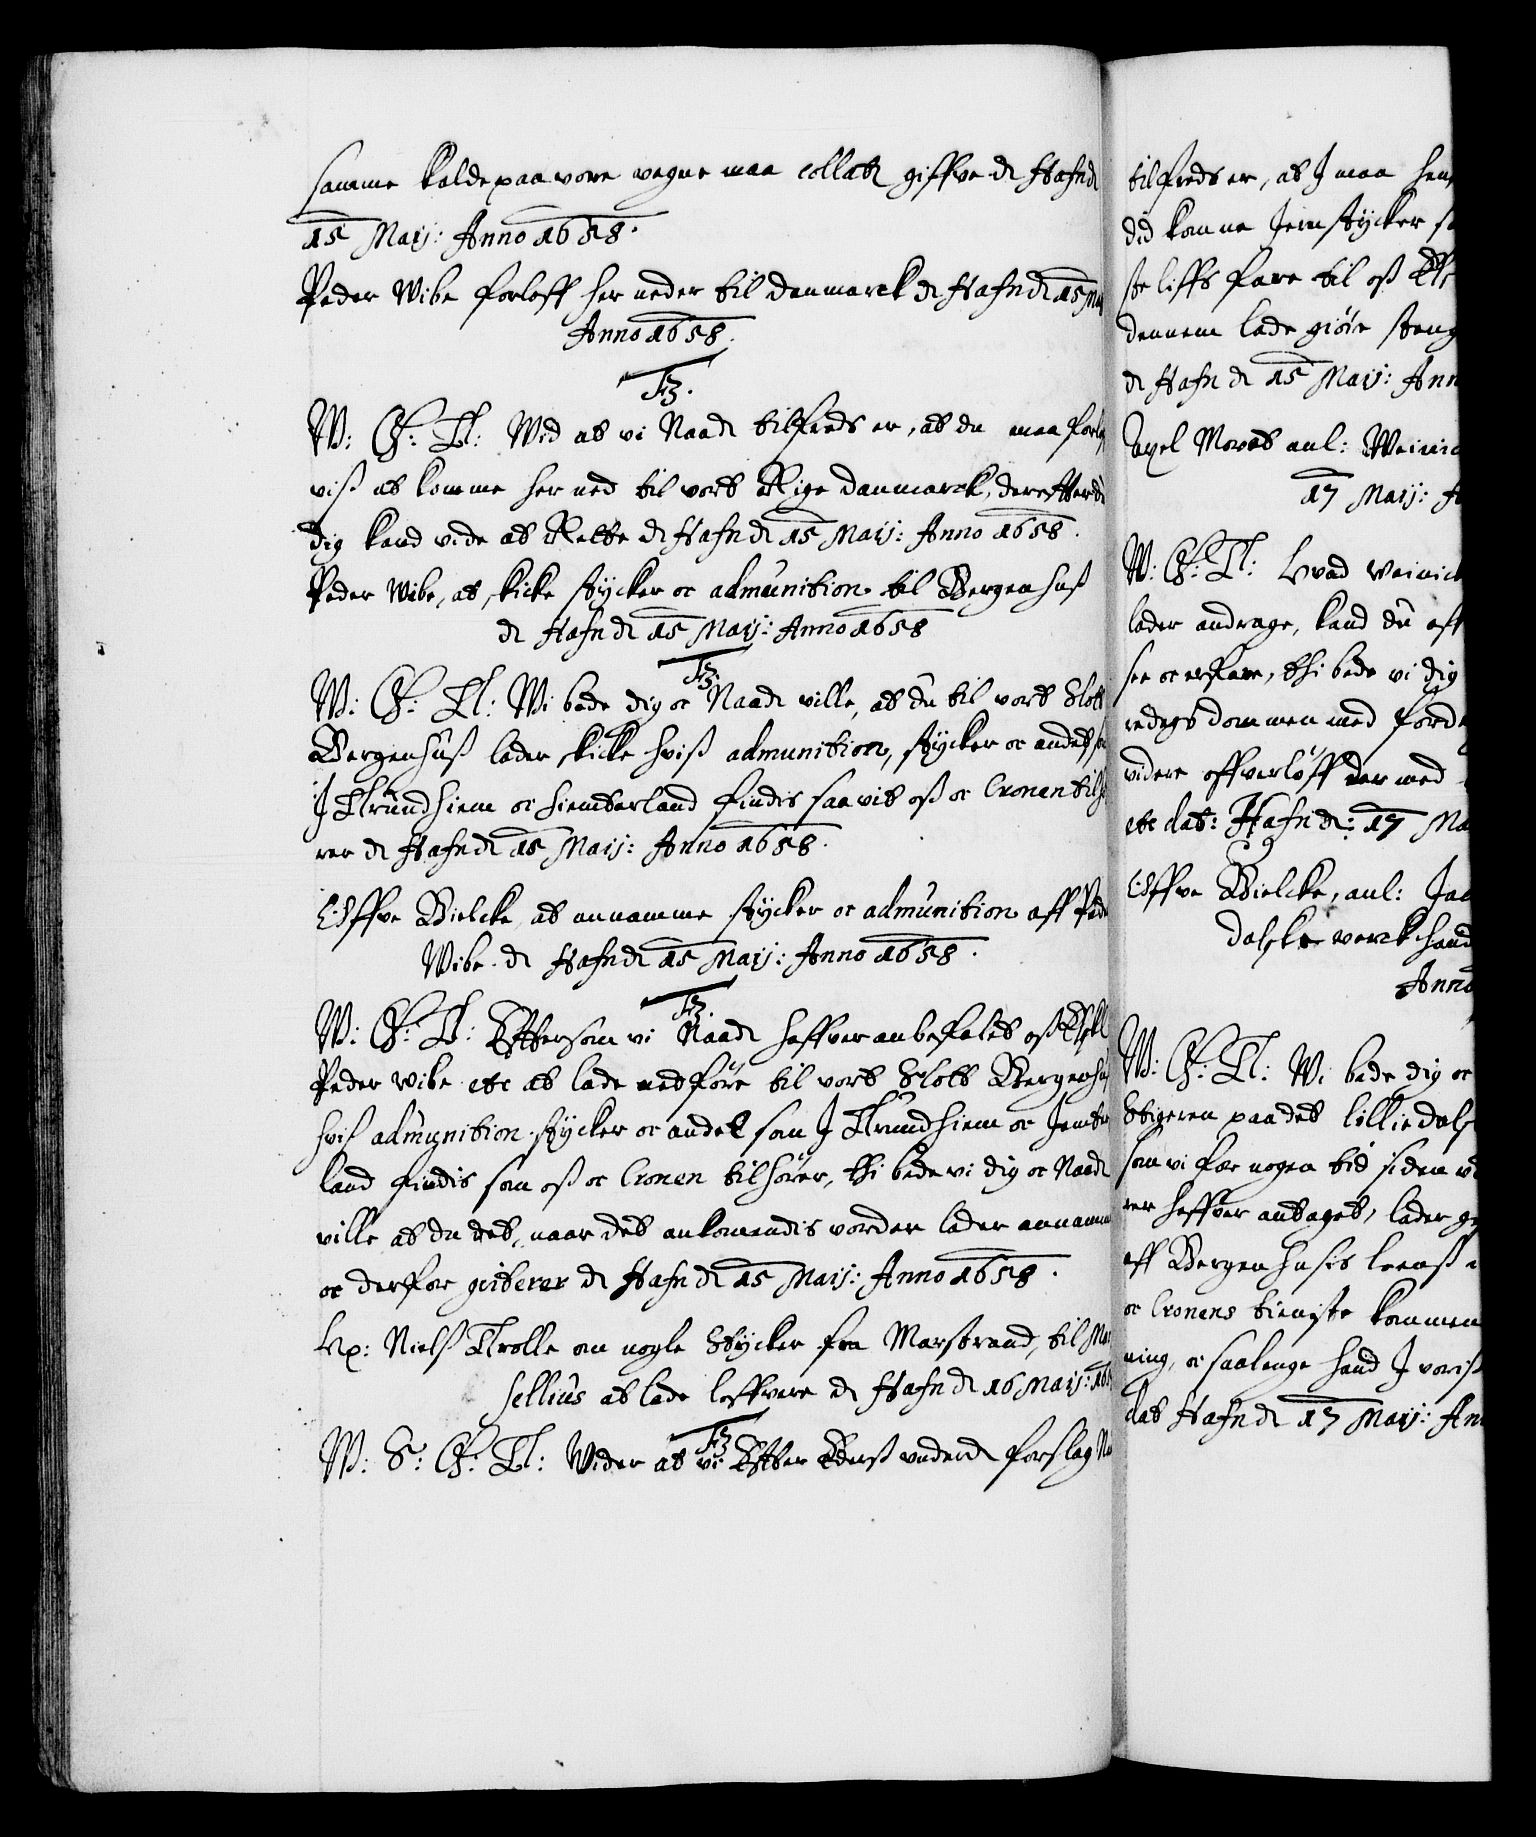 samme kalde paa vore vegne maa collatz giffve dt Hafn dt
15 Maij: Anno 1658.
Peder Wibe forloff her neder til Danmarck dt Hafn dt 15 Maij
Anno 1658.
F3.
W: G: T: Wid at vi Naadt tilfreds er, at du maa forloff
viss at komme her ned til vort Rige Danmarck, derefter du
dig kand vide at Rette dt Hafn dt 15 Maij: Anno 1658.
Peder Wibe, at skicke stycker oc admunition til Bergenhuss
dt Hafn dt 15 Maij: Anno 1658
F3.
W: G: T: Wi bede dig oc Naadt ville, at du til vort Slott
Bergenhuss lader skicke hviss admunition, stycker oc andet som
J Trundhiem oc Hiemterland findis saavit oss oc Cronen tilhø
rer dt Hafn dt 15 Maij: Anno 1658.
E: Offve Bielcke at annamme stycker oc admunition aff Peder
Wibe dt Hafn dt 15 Maij: Anno 1658.
F3.
W: G: T: Eftersom vi Naadt haffver anbefalet oss Elskl
Peder Wibe etc at lade nedføre til vort Slott Bergenhuss
hviss admunition stycker oc andet som J Trundhiem oc Jemter
land findis som oss oc Cronen tilhører, thi bede vi dig oc Naadt
ville at du det, naar det ankomendis vorder lader annamme
oc derfor qviterer dt Hafn dt 15 Maij: Anno 1658.
Hr: Nielss Trolle om nogle Stycker fra Marstrand, til Mar
sellius at lade leffvere dt Hafn dt 16 Maij: 1658
F3
W: S: G: T: Wider at vi Efter Eders underd forslag Naa
tilfreds er, at J maa hen
did komne Jernstycker so
ste liffs fare til oss
dennem lade giöre
dt Hafn dt 15 Maij: Ann
Axel Mowat anl: Weinic
17 Maij: A
W: G: T: Hvad Weinick
lader andrage, kand du aff
see oc erfare, thi bede vi dig
redags dommen med forde
videre offverløff der med
etc dat: Hafn dt: 17 Ma
E: Offve Bielcke, anl: Jac
dalske werck hand
Anno
W: G: T: Wi bede dig oc
Stigeren paa det Lilliedals
som vi for nogen tid siden
rer haffver antaget, lader
aff Bergenhusis Leenss
oc Cronens tieniste kommen
ning, oc saalenge hand J voris
dat Hafn dt 17 Maij: An